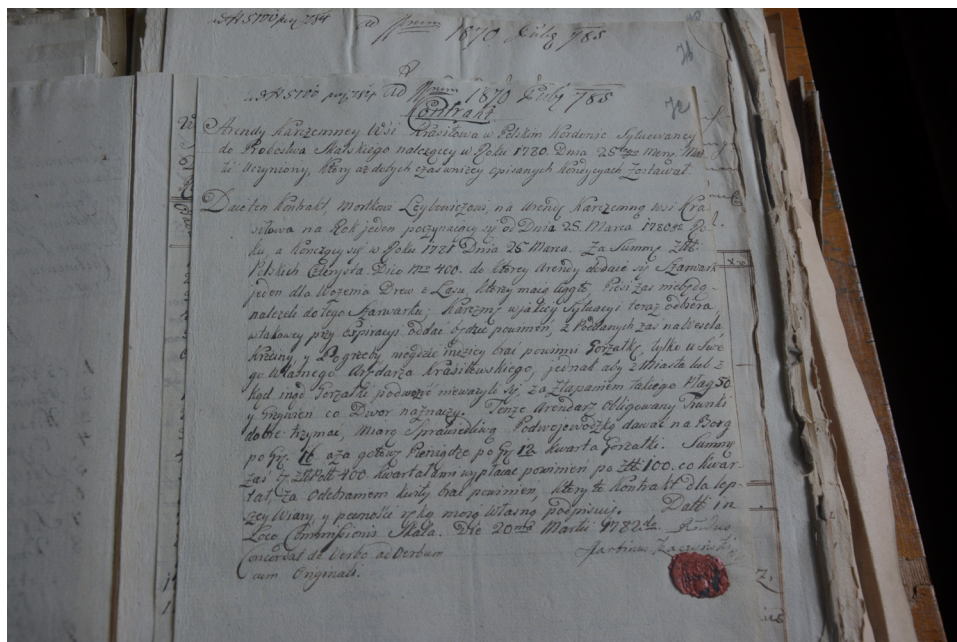 ad N 5700 pro 784 ad Nrum 1870 July 785
76
ad N 5700 pro 784 ad Nrum 1870 July 785
72
Kontrakt
Arendy Karczemney Wsi Krasiłowa w Polskim Kordonie Sytuowaney
do Probostwa Skalskiego należący w Roku 1780. Dnia 25 Mca Mar
Uczyniony, który aż dotych czas w niżey opisanych Kondycyach zostawał.
Daie ten Kontrakt, Mortkowi Leybowiczowi, na Arendę Karczemną wsi Kra-
siłowa na Rok jeden poczynaiący się od Dnia 25. Marca 1780 Ro-
ku, a kończący się w Roku 1781 Dnia 25 Marca. Za Summę Złł:
Polskich Czterysta. Dico Nro 400. do ktorey Arendy dodaie się Szarwark
jeden dla Wożenia Drew z Lasu, ktorzy maią ciągłe. Piesi zas niebędą
należeli do tego Szarwarku, Karczmę w jakiey Sytuacyi teraz odbiera
w takowey przy exspiracyi oddać będzie powinien, z Poddanych zas na Wesela
Krzciny, y Pogrzeby niegdzie indziey brać powinni Gorzałkę, tylko u Swe-
go Własnego Arędarza Krasiłowskiego, jednak aby z Miasta lub z
kąd inąd Gorzałki podwozić nieważyli się, za złapaniem takiego Plag 50
y Grzywien co Dwor naznaczy. Tenże Arendarz Obligowany Trunki
dobre trzymać, Miarę Sprawiedliwą Podwojewodzką dawać na Borg
po gr. 16 a za gotowe Pieniądze po gr 12 kwarta Gorzałki. Summę
zas Złł Poll 400 Kwartałami wypłacać powinien po Złł 100. co kwar-
tał, za Odebraniem kwity brać powinien, który to Kontrakt dla lep-
szey Wiary, y pewności ręką moią Własną podpisuię. Datt in
Loco Commissionis Skala. Die 20 Martii 1782
Concordat de Verbo ad Verbum
cum Originali.